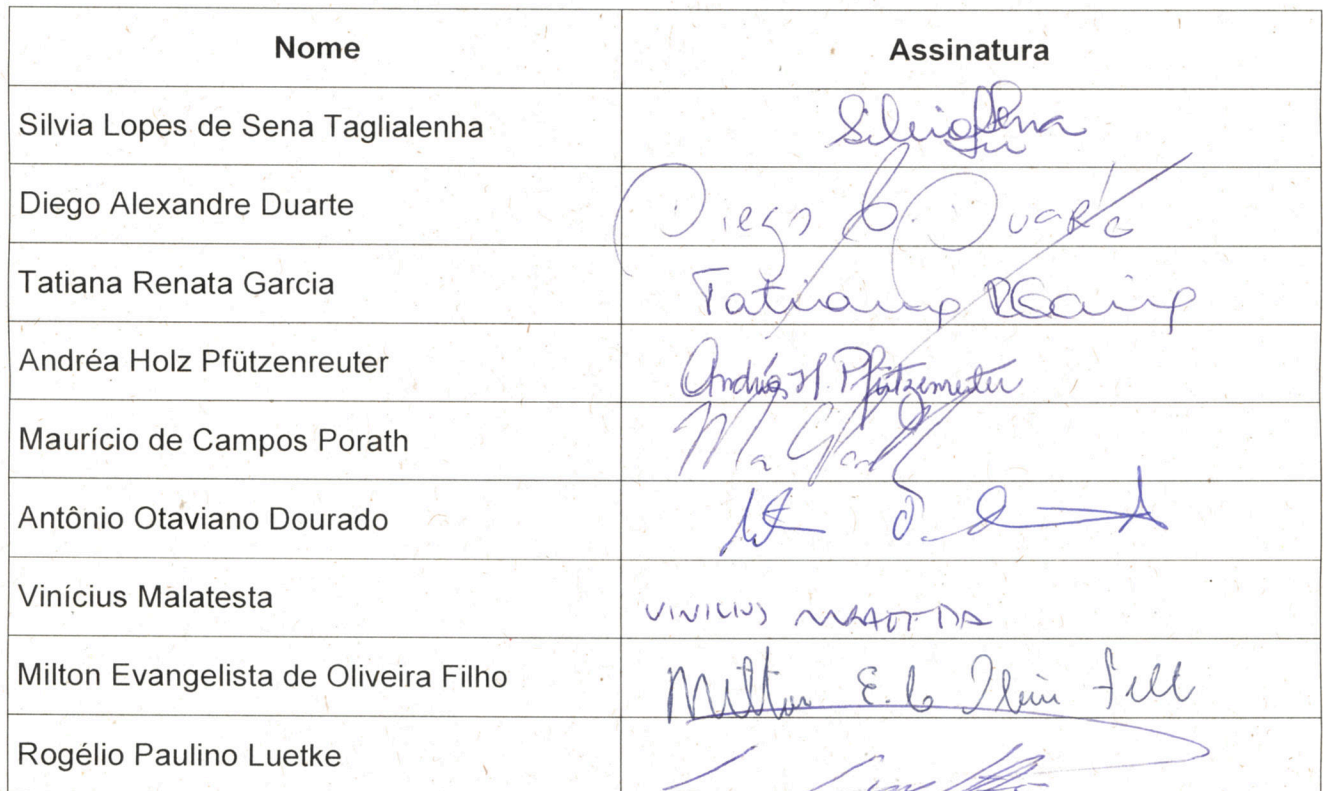 Nome Assinatura
Silvia Lopes de Sena Taglialenha Silvia Sena
Diego Alexandre Duarte Diego Duarte
Tatiana Renata Garcia Tatiana RGarcia
Andréa Holz Pfützenreuter Andréa H. Pfützenreuter
Maurício de Campos Porath
Antônio Otaviano Dourado
Vinícius Malatesta VINICIUS
Milton Evangelista de Oliveira Filho Milton E.
Rogélio Paulino Luetke